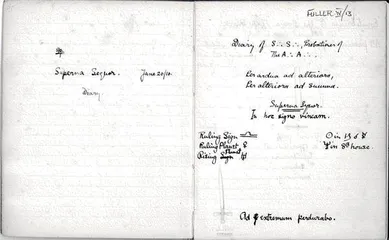 Superna Sequor. June 20/10.
Diary
FULLER IV/13
Diary of S∴ S∴, Probationer of
The A∴ A∴.
Per ardua ad altiora,
Per altiora ad summa.
Superna Sequor.
In hoc signo vincam.
Ruling Sign ♎
Ruling Planet
Rising Sign
in 8th house.
Ad extremum perdurabo.